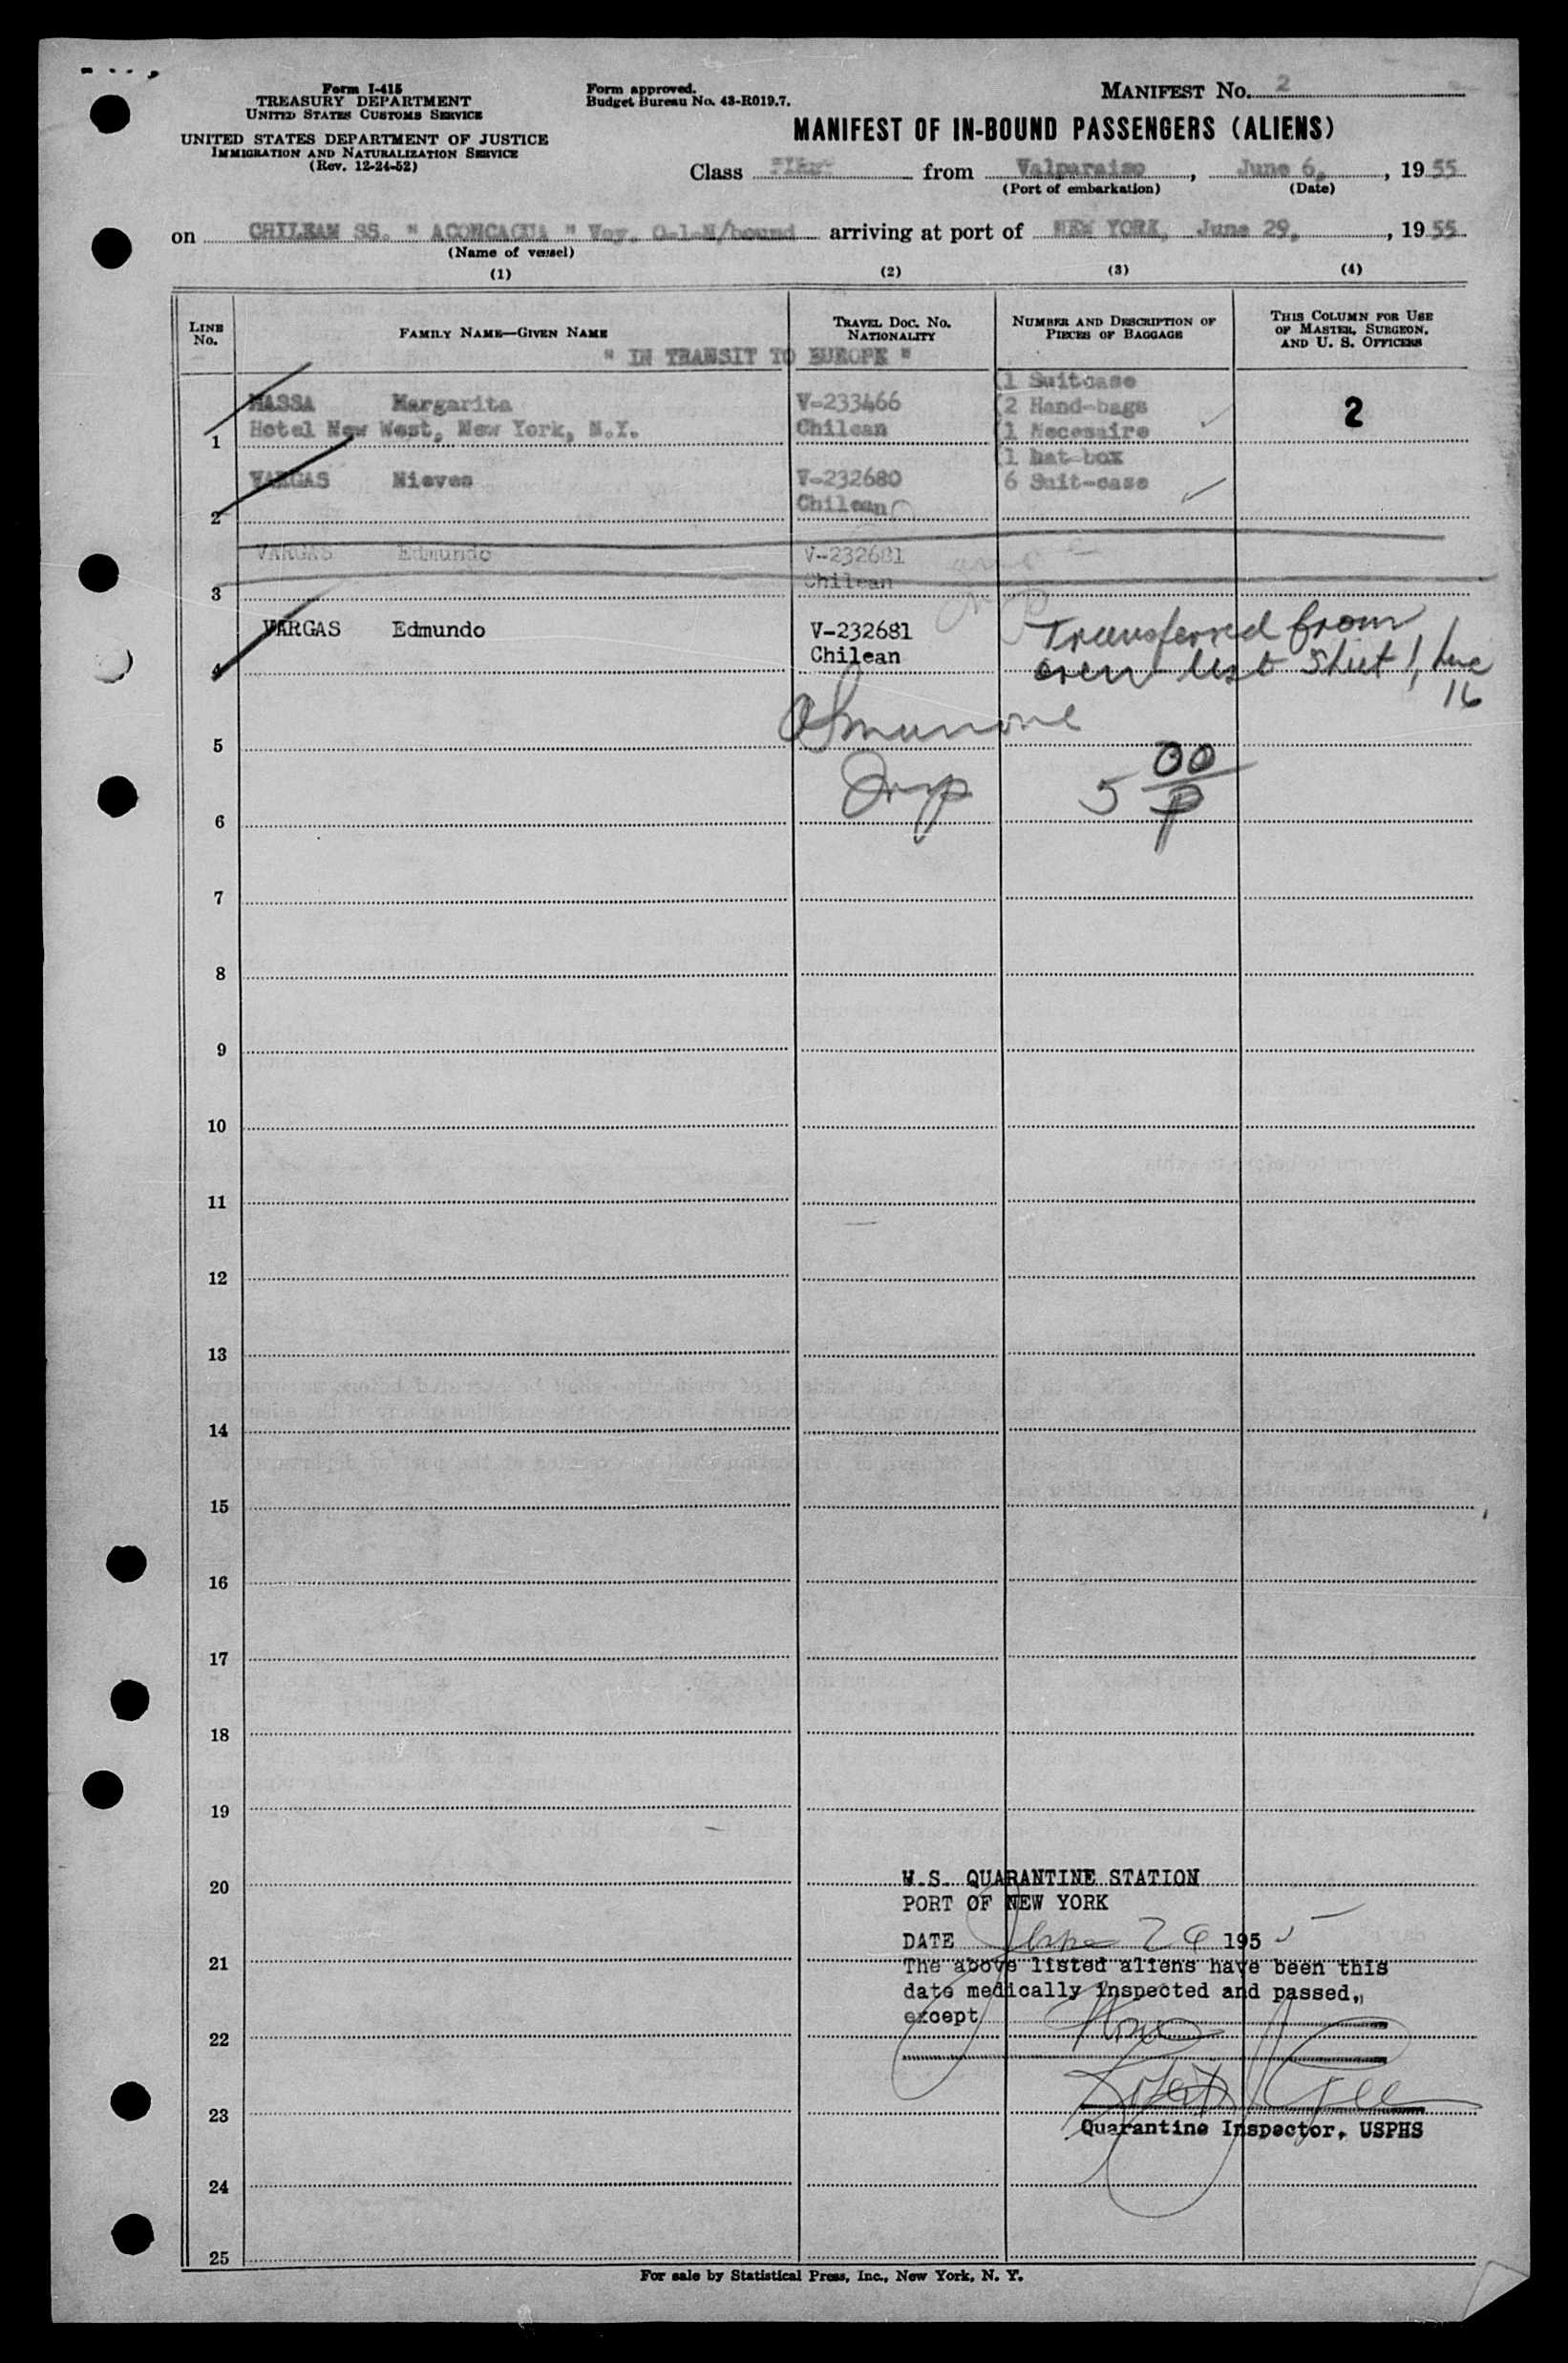 Form I-415
TREASURY DEPARTMENT
UNITED STATES CUSTOMS SERVICE
UNITED STATES DEPARTMENT OF JUSTICE
IMMIGRATION AND NATURALIZATION SERVICE
(Rev. 12-24-52)
Form approved.
Budget Bureau No. 43-R019.7.
MANIFEST No. 2
MANIFEST OF IN-BOUND PASSENGERS (ALIENS)
Class First from Valparaiso, June 6, , 1955
(Port of embarkation) (Date)
on CHILEAN SS. " ACONCAGUA " Voy. O-1-N/bound arriving at port of NEW YORK, June 29, , 1955
(Name of vessel)
(1) (2) (3) (4)
LINE No.
FAMILY NAME—GIVEN NAME
TRAVEL DOC. No. NATIONALITY
NUMBER AND DESCRIPTION OF PIECES OF BAGGAGE
THIS COLUMN FOR USE OF MASTER, SURGEON, AND U. S. OFFICERS
" IN TRANSIT TO EUROPE "
(1 Suitcase
MASSA Margarita V-233466 (2 Hand-bags 2
1 Hotel New West, New York, N.Y. Chilean (1 Necesaire
(1 hat-box
VARGAS Nieves V-232680 6 Suit-case
2 Chilean
VARGAS Edmundo V-232681
3 Chilean
VARGAS Edmundo V-232681 Transferred from
4 Chilean crew list sheet 1, line
16
5
5 00/P
6
7
8
9
10
11
12
13
14
15
16
17
18
19
20 U.S. QUARANTINE STATION
PORT OF NEW YORK
DATE June 195
21 The above listed aliens have been this
date medically inspected and passed,
except
22
23
Quarantine Inspector, USPHS
24
25
For sale by Statistical Press, Inc., New York, N. Y.